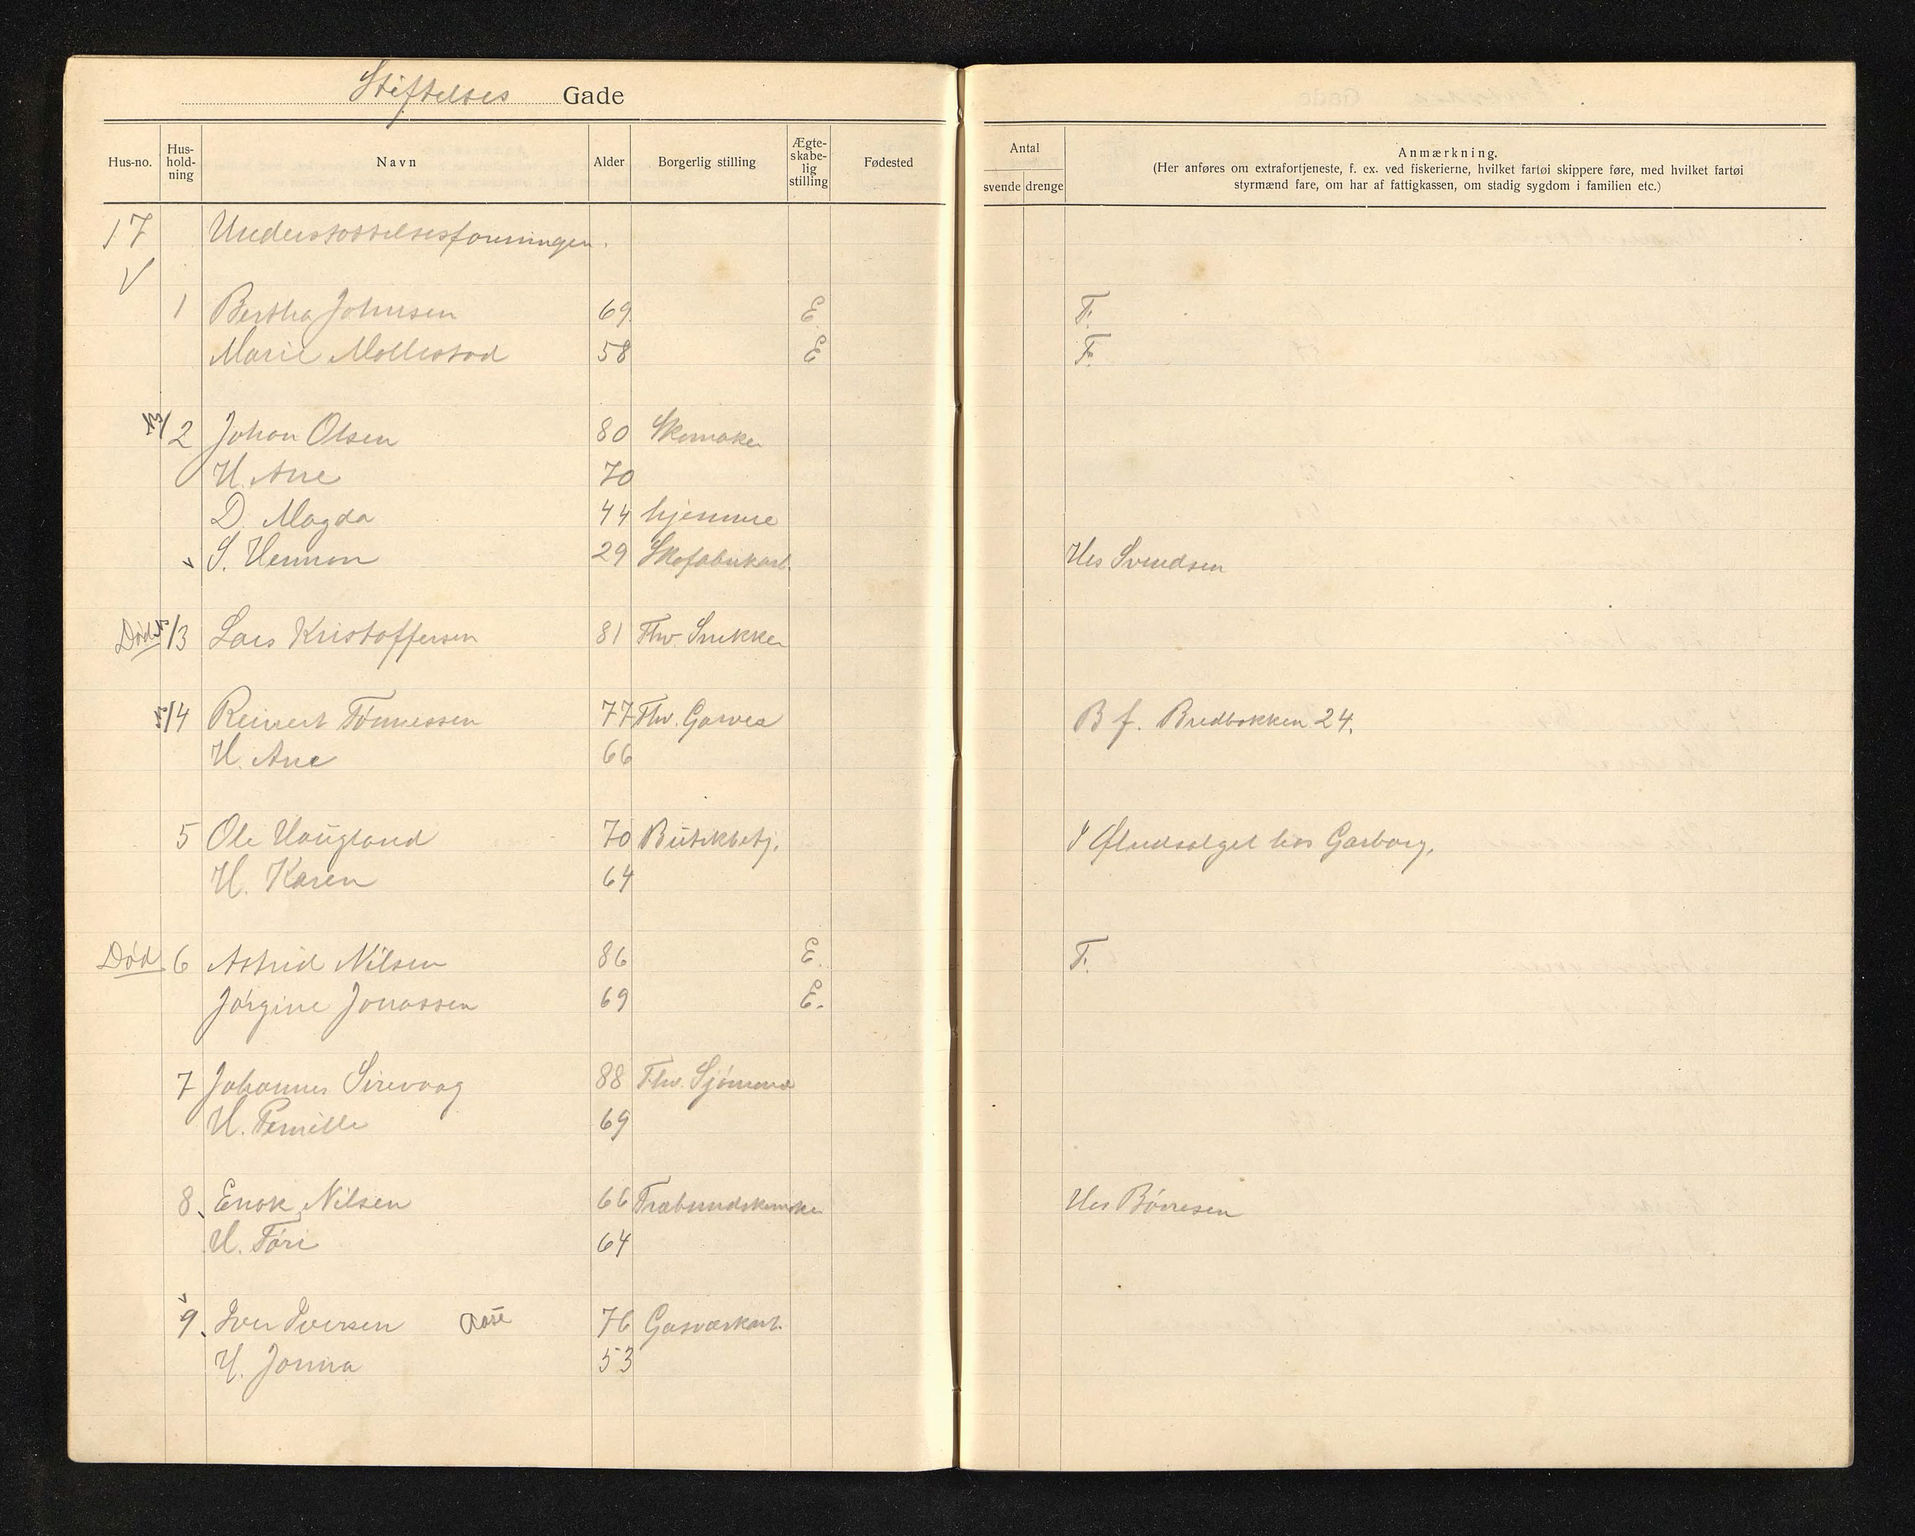 Stiftelses Gade
Hus-no. Hus-hold-ning Navn Alder Borgerlig stilling Ægte-skabe-lig stilling Fødested Antal svende drenge Anmærkning.
(Her anføres om extrafortjeneste, f. ex. ved fiskerierne, hvilket fartøi skippere føre, med hvilket fartøi
styrmænd fare, om har af fattigkassen, om stadig sygdom i familien etc.)
17 Understøttelsesforeningen.
1 Bertha Johnsen 69 E F.
Marie Mollestad 58 E F.
2 Johan Olsen 80 Skomaker
H. Ane 70
D. Magda 44 hjemme
S. Herman 29 Skofabrikarb. Hos Svendsen
Død 3 Lars Kristoffersen 81 Fhv. Snekker
4 Reinert Tønnessen 77 Fhv. Garver B f. Bredbakken 24.
H. Ane 66
5 Ole Haugland 70 Butikbetj. I Øludsalget hos Garborg.
H. Karen 64
Død 6 Astrid Nilsen 86 E. F.
Jørgine Jonassen 69 E.
7 Johannes Sirevaag 88 Fhv. Sjømand
H. Pernille 69
8 Enok Nilsen 66 Træbundskomaker Hos Børresen
H. Tori 64
9 Iver Iversen Aase 76 Gasværkarb.
H. Jonna 53